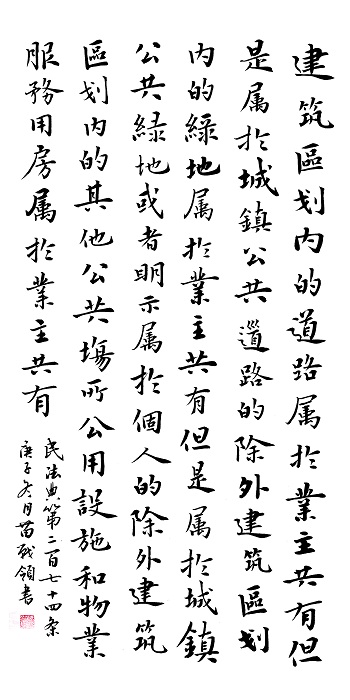 建筑區划内的道路属於業主共有但
是属於城鎮公共道路的除外建筑區划
内的綠地属於業主共有但是属於城鎮
公共綠地或者明示属於個人的除外建筑
區划内的其他公共場所公用設施和物業
服務用房属於業主共有
民法典第二百七十四条
庚子冬月苗戟領書